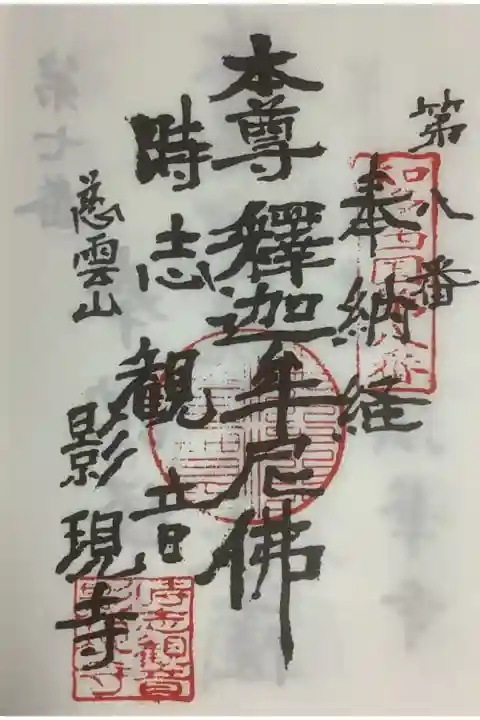 第八番
奉納経
本尊 釋迦牟尼佛
時志観音
慈雲山
影現寺
時志観音
第七番